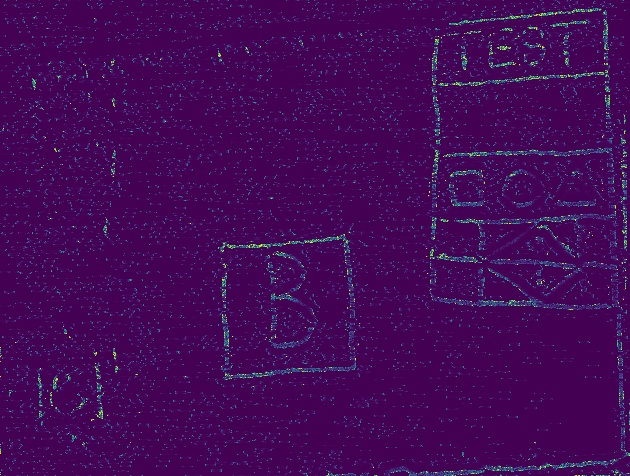 TEST
B